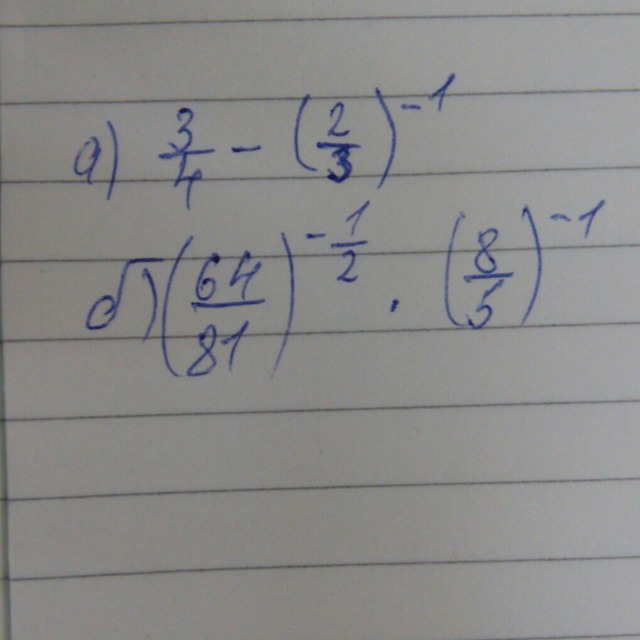 a) 3/4 - (2/3)^-1
б) (64/81)^-1/2 . (8/5)^-1